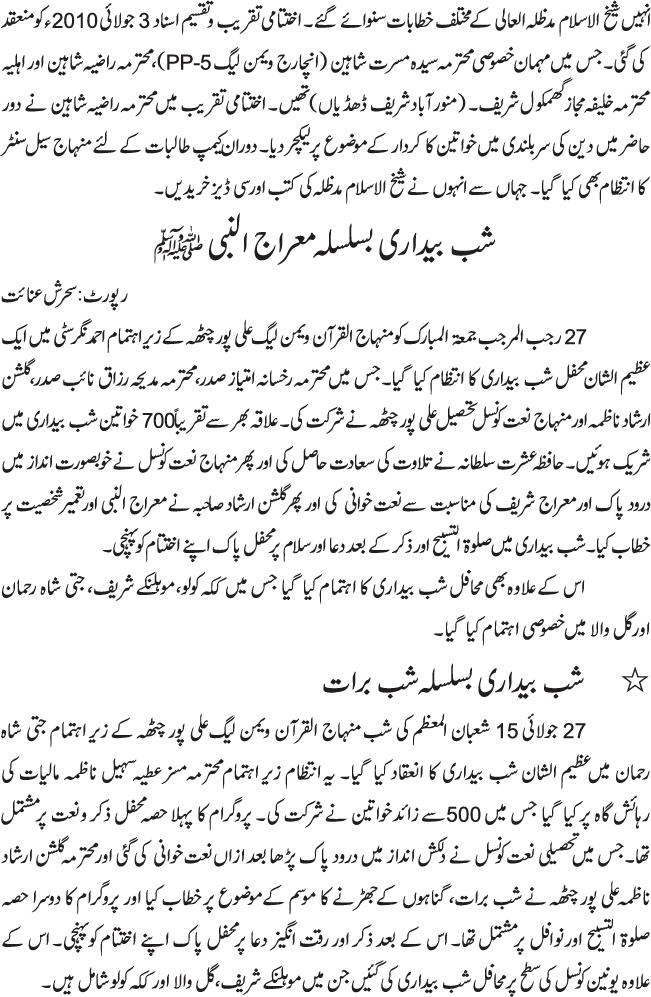 انہیں شیخ الاسلام مدظلہ العالی کے مختلف خطابات سنوائے گئے۔ اختتامی تقریب و تقسیم اسناد 3 جولائی 2010ء کو منعقد
کی گئی۔ جس میں مہمان خصوصی محترمہ سیدہ مسرت شاہین (انچارج ویمن لیگ PP-5)، محترمہ راضیہ شاہین اور اہلیہ
محترمہ خلیفہ مجاز گھمکول شریف۔ (منور آباد شریف ڈھڈیاں) تھیں۔ اختتامی تقریب میں محترمہ راضیہ شاہین نے دور
حاضر میں دین کی سربلندی میں خواتین کا کردار کے موضوع پر لیکچر دیا۔ دوران کیمپ طالبات کے لئے منہاج سیل سنٹر
کا انتظام بھی کیا گیا۔ جہاں سے انہوں نے شیخ الاسلام مدظلہ کی کتب اور سی ڈیز خریدیں۔
شب بیداری بسلسلہ معراج النبی ﷺ
رپورٹ: سحرش عنائت
27 رجب المرجب جمعۃ المبارک کو منہاج القرآن ویمن لیگ علی پور چٹھہ کے زیر اہتمام احمد نگر سٹی میں ایک
عظیم الشان محفل شب بیداری کا انتظام کیا گیا۔ جس میں محترمہ رخسانہ امتیاز صدر، محترمہ مدیحہ رزاق نائب صدر، گلشن
ارشاد ناظمہ اور منہاج نعت کونسل تحصیل علی پور چٹھہ نے شرکت کی۔ علاقہ بھر سے تقریباً 700 خواتین شب بیداری میں
شریک ہوئیں۔ حافظہ عشرت سلطانہ نے تلاوت کی سعادت حاصل کی اور پھر منہاج نعت کونسل نے خوبصورت انداز میں
درود پاک اور معراج شریف کی مناسبت سے نعت خوانی کی اور پھر گلشن ارشاد صاحبہ نے معراج النبی اور تعمیر شخصیت پر
خطاب کیا۔ شب بیداری میں صلوۃ التسبیح اور ذکر کے بعد دعا اور سلام پر محفل پاک اپنے اختتام کو پہنچی۔
اس کے علاوہ بھی محافل شب بیداری کا اہتمام کیا گیا جس میں ککہ کولو، موہلنکے شریف، جتی شاہ رحمان
اور گل والا میں خصوصی اہتمام کیا گیا۔
☆ شب بیداری بسلسلہ شب برات
27 جولائی 15 شعبان المعظم کی شب منہاج القرآن ویمن لیگ علی پور چٹھہ کے زیر اہتمام جتی شاہ
رحمان میں عظیم الشان شب بیداری کا انعقاد کیا گیا۔ یہ انتظام زیر اہتمام محترمہ مسز عطیہ سہیل ناظمہ مالیات کی
رہائش گاہ پر کیا گیا جس میں 500 سے زائد خواتین نے شرکت کی۔ پروگرام کا پہلا حصہ محفل ذکر و نعت پر مشتمل
تھا۔ جس میں تحصیلی نعت کونسل نے دلکش انداز میں درود پاک پڑھا بعد ازاں نعت خوانی کی گئی اور محترمہ گلشن ارشاد
ناظمہ علی پور چٹھہ نے شب برات، گناہوں کے جھڑنے کا موسم کے موضوع پر خطاب کیا اور پروگرام کا دوسرا حصہ
صلوۃ التسبیح اور نوافل پر مشتمل تھا۔ اس کے بعد ذکر اور رقت انگیز دعا پر محفل پاک اپنے اختتام کو پہنچی۔ اس کے
علاوہ یونین کونسل کی سطح پر محافل شب بیداری کی گئیں جن میں موہلنکے شریف، گل والا اور ککہ کولو شامل ہیں۔